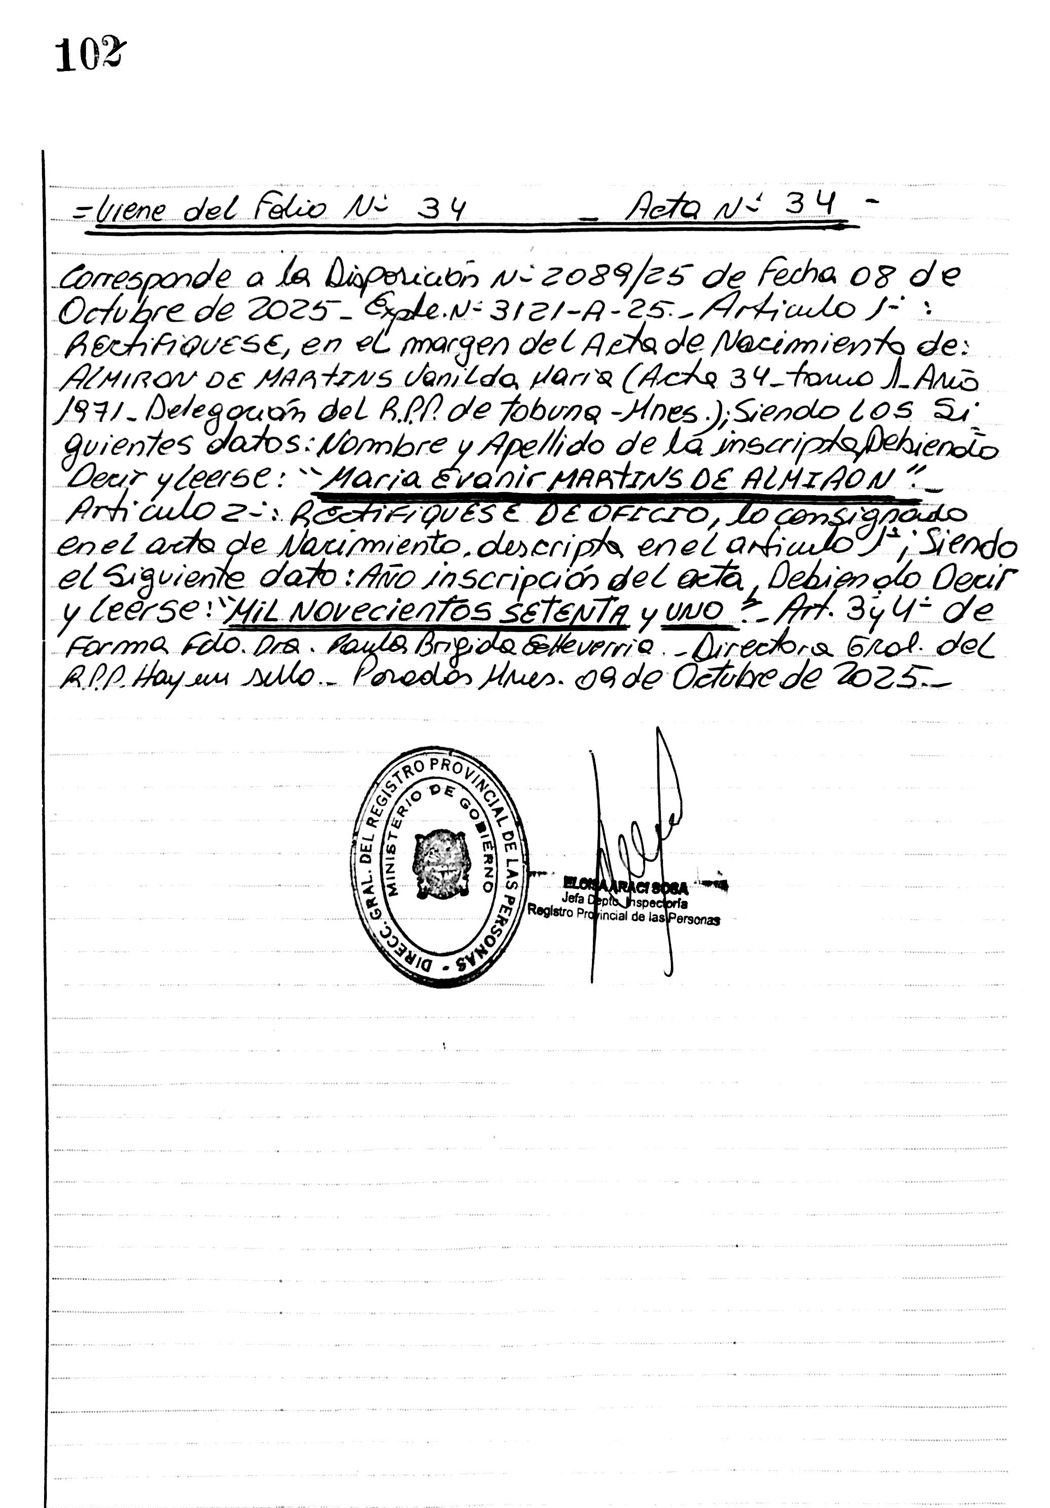 102
=Viene del Folio Nº 34 _ Acta Nº 34 -
Corresponde a la Disposición Nº 2089/25 de Fecha 08 de
Octubre de 2025_ Expte. Nº 3121-A-25._ Articulo 1º :
RECTIFIQUESE, en el margen del Acta de Nacimiento de:
ALMIRON DE MARTINS Vanilda Maria (Acta 34_ tomo 1_ Año
1971_ Delegación del R.P.P. de tobuna -Mnes.); Siendo LOS Si_
guientes datos: Nombre y Apellido de la inscripta, Debiendo
Decir y Leerse: "Maria Evanir MARTINS DE ALMIRON"._
Articulo 2º: RECTIFIQUESE DE OFICIO, lo consignado
en el acta de Nacimiento, descripta en el articulo 1º; Siendo
el Siguiente dato: AÑO inscripción del acta, Debiendo Decir
y Leerse: "MIL NOVECIENTOS SETENTA y UNO"._ Art. 3 y 4º de
Forma Fdo. Dra. Paula Brigida Etcheverria._ Directora Gral. del
R.P.P. Hay un sello._ Posadas Mnes. 09 de Octubre de 2025._
DIRECC. GRAL. DEL REGISTRO PROVINCIAL DE LAS PERSONAS -
MINISTERIO DE GOBIERNO
ELOISA ARACI SOSA
Jefa Depto. Inspectoría
Registro Provincial de las Personas